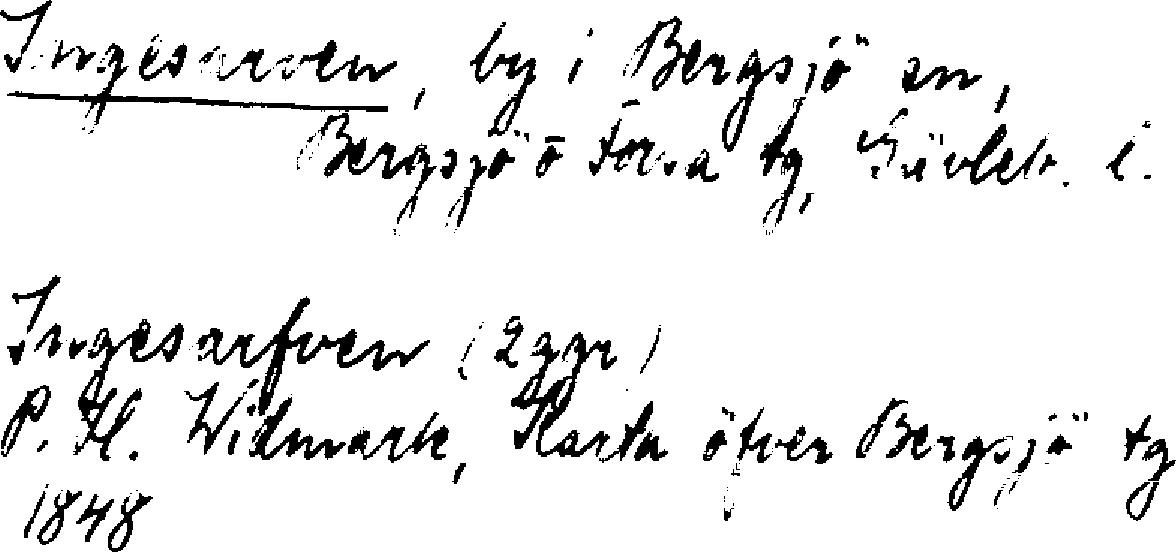 Ingesarven, by i Bergsjö sn,
Bergsjö o Forsa tg, Gävleb. l.
Ingesarfven (2 ggr)
P. H. Widmark, Karta öfver Bergsjö tg
1848